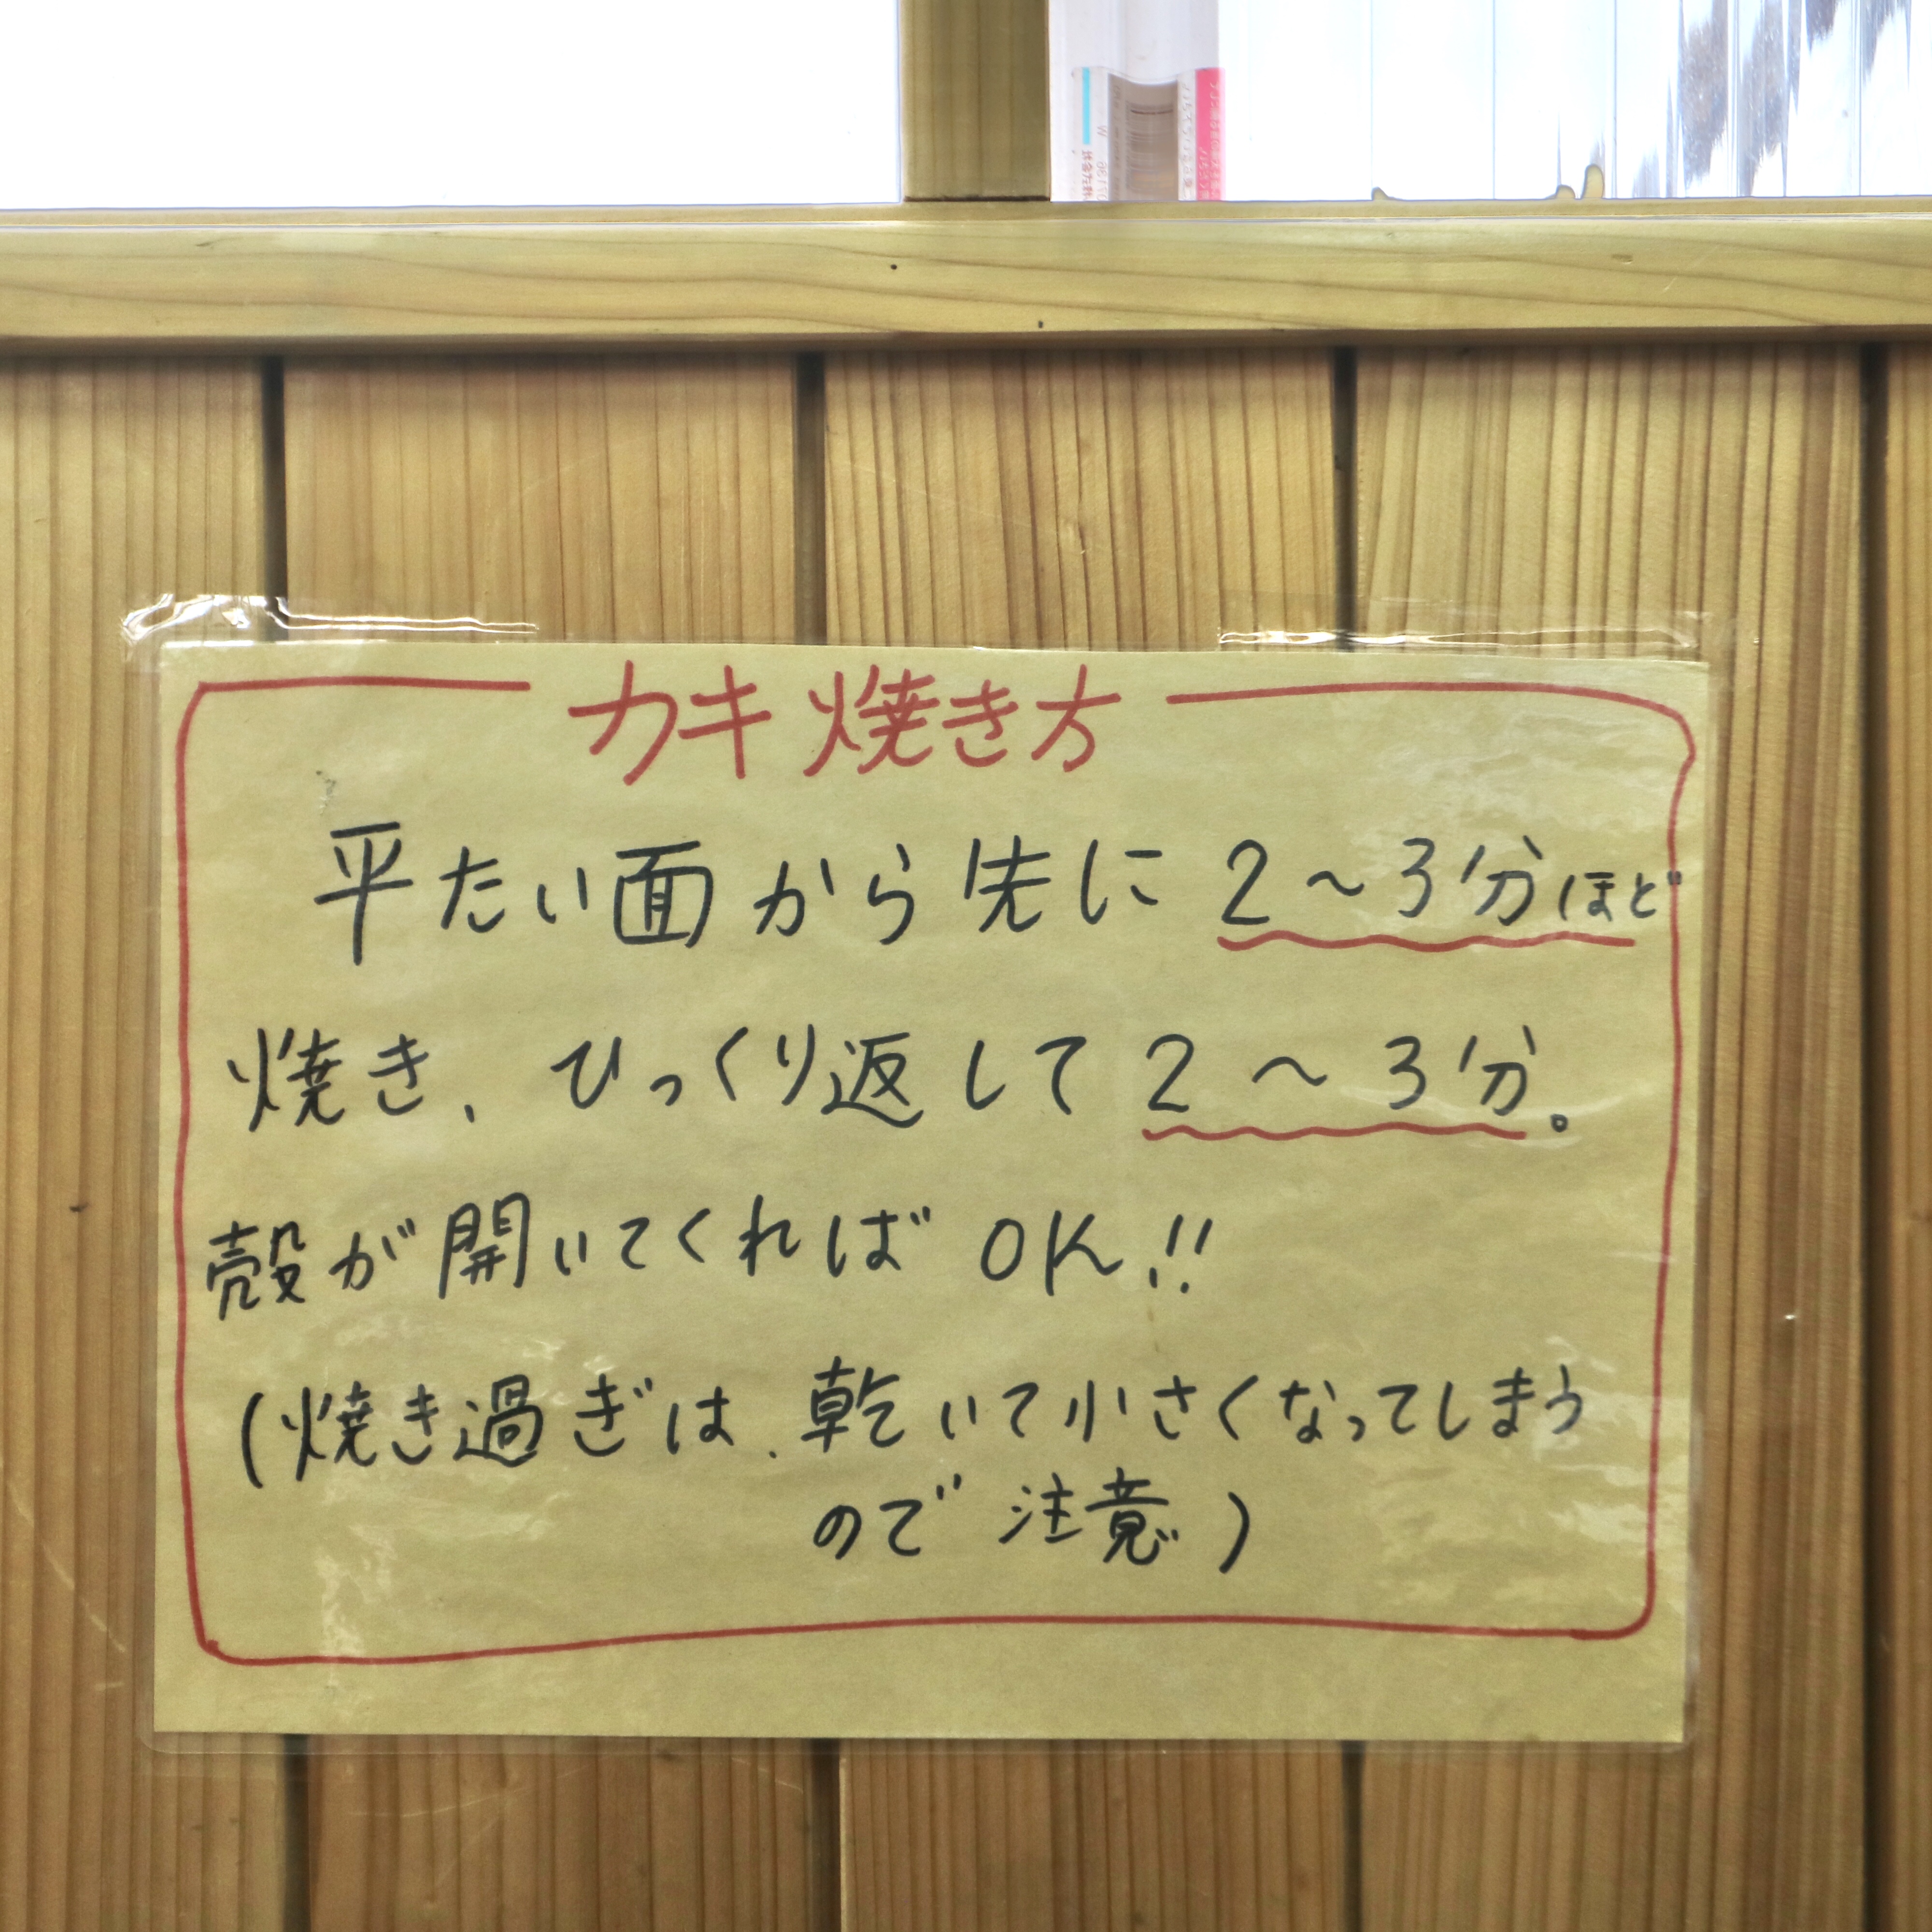 カキ焼き方
平たい面から先に2〜3分ほど
焼き、ひっくり返して2〜3分。
殻が開いてくればOK!!
(焼き過ぎは、乾いて小さくなってしまう
ので注意)